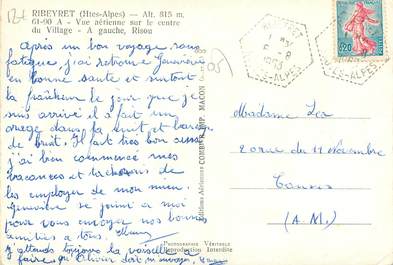 RIBEYRET (Htes-Alpes) — Alt. 815 m.
61-90 A - Vue aérienne sur le centre
du Village - A gauche, Risou
Après un bon voyage, sans
fatigue, j'ai retrouvé Geneviève
en bonne santé et surtout
la fraîcheur le jour que je
suis arrivé il a fait un
orage dans la nuit et
de bruit. Il fait très bon aussi
j'ai bien commencé mes
vacances et tacherons de
les employer de mon mieux.
Geneviève se joint a moi
pour vous envoyer nos bonnes
amitiés a tous.
J'attends toujours la vaisselle à
faire, qu'Olivier doit m'envoyer.
Editions Aériennes COMBIER IMP. MACON
PHOTOGRAPHIE VÉRITABLE
Reproduction Interdite
Madame
2 orue du 11 Novembre
(A.M.)
0,20